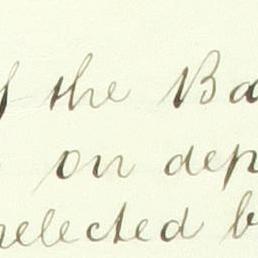 of the Ba
on dep
selected b